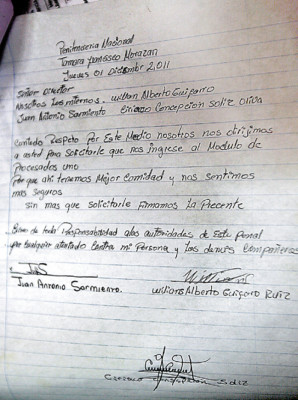 Penitenciaria Nacional
Tamara Francisco Morazan
Jueves 01 Diciembre 2,011
Señor Director
Nosotros Los internos. william Alberto Guifarro
Juan Antonio Sarmiento Ciriaco Concepción Soliz oliva
Con todo Respeto Por Este Medio nosotros nos dirijimos
a usted para solicitarle que nos ingrese al Modulo de
Procesados uno
Por que ahi tenemos Mejor Comidad y nos sentimos
mas seguros
sin mas que solicitarle Firmamos La Presente
de toda responsabilidad alas autoridades de Este Penal
por cualquier atentado Contra mi Persona y Los demás Compañeros
JAS
Juan Antonio Sarmiento.
William Alberto Guifarro Ruiz
Ciriaco Concepcion Soliz